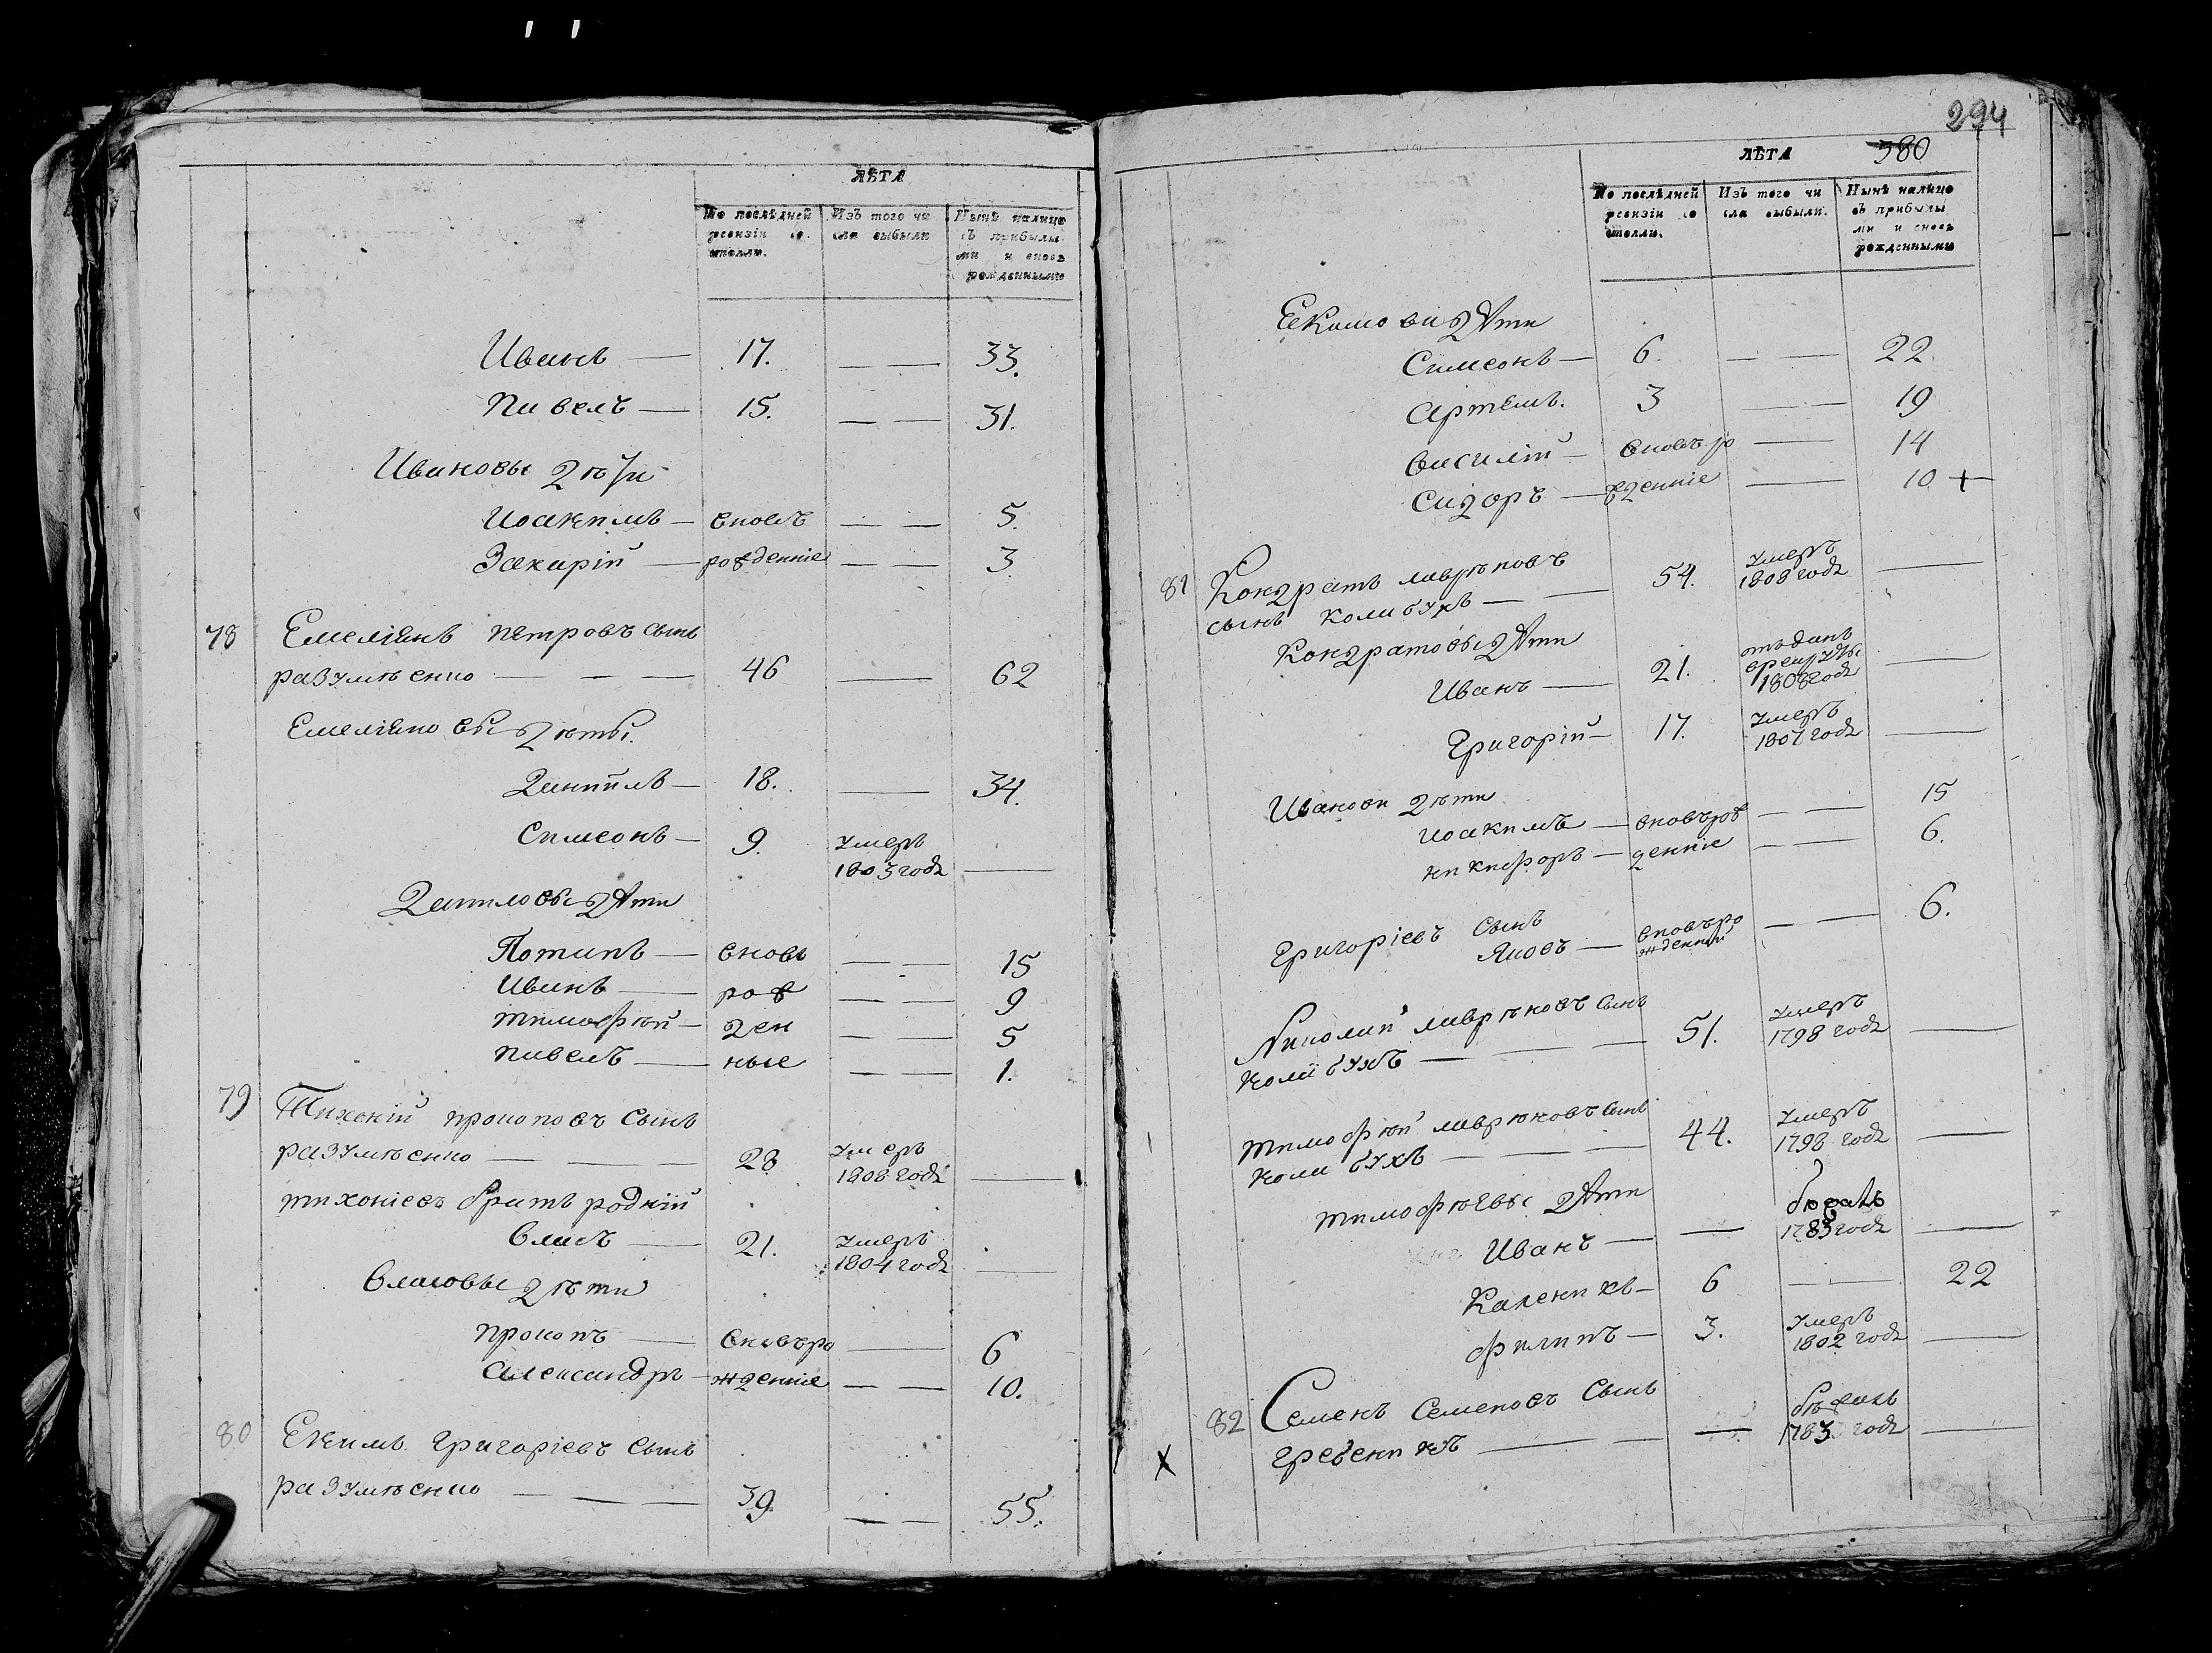 ЛѢТА
По послѣдней ревизіи со стояли.
Изъ того чи сла выбыли
Нынѣ налицо съ прибылы ми и вновь рожденными
Иванъ — 17. — — 33.
Павелъ — 15. — — 31.
Ивановы дѣти
Иоакимъ — вновь — — 5.
Захарій — рожденніе — — 3
78 Емеліянъ Петровъ сынъ
разумѣенко — — — 46 — 62
Емеліяновы дѣты.
Даніилъ — 18. — 34.
Симеонъ — 9. умеръ
1803 годȣ —
Даниловы дѣти
Потапъ — вновь — — 15
Иванъ — рож — — 9
тимофѣй — ден — — 5
павелъ — ные — — 1.
79 Тихоній прокоповъ сынъ
разумѣенко — — — 28 умеръ
1808 годȣ —
тихоніевъ братъ родній
Власъ — 21. умеръ
1804 годȣ —
Власовы дѣти
прокопъ — вновъ ро — 6
александръ — жденніе — — 10.
80 Екимъ григоріевъ сынъ
разумѣенко — — — 39 — — 55.
294
580
ЛѢТА
По послѣдней ревизіи со стояли.
Изъ того чи сла выбыли.
Нынѣ налицо съ прибылы ми и вновь рожденными
Екимови Дѣти
Симеонъ — 6. — — 22
артемъ. 3 — 19
василій — вновъ ро — 14
сидоръ — жденніе — 10 +
81 Кондратъ лаврѣновъ
сынъ колибухъ — — 54. умеръ
1808 годȣ —
Кондратовы Дѣти
Иванъ — 21. отъданъ
врекруты
1808 годȣ —
Григорій — 17. умеръ
1807 годȣ —
Иванови дѣти
иоакимъ — вновъ рож — — 15
никифоръ — денніе — — 6.
Григоріевъ сынъ
Яковъ — вновъ ро
жденній — — 6.
Николай лаврѣновъ сынъ
колибухъ — — — 51. умеръ
1798 годȣ —
тимофѣй лаврѣновъ сынъ
колибухъ — — — 44. умеръ
1798 годȣ —
тимофѣевы Дѣти
Иванъ — — бѣжалъ
1783 годȣ —
Каленикъ — 6 — 22
филипъ — 3. умеръ
1802 годȣ —
82 Семенъ Семеновъ сынъ
гребеникъ — — — бѣжалъ
1783 годȣ —
X